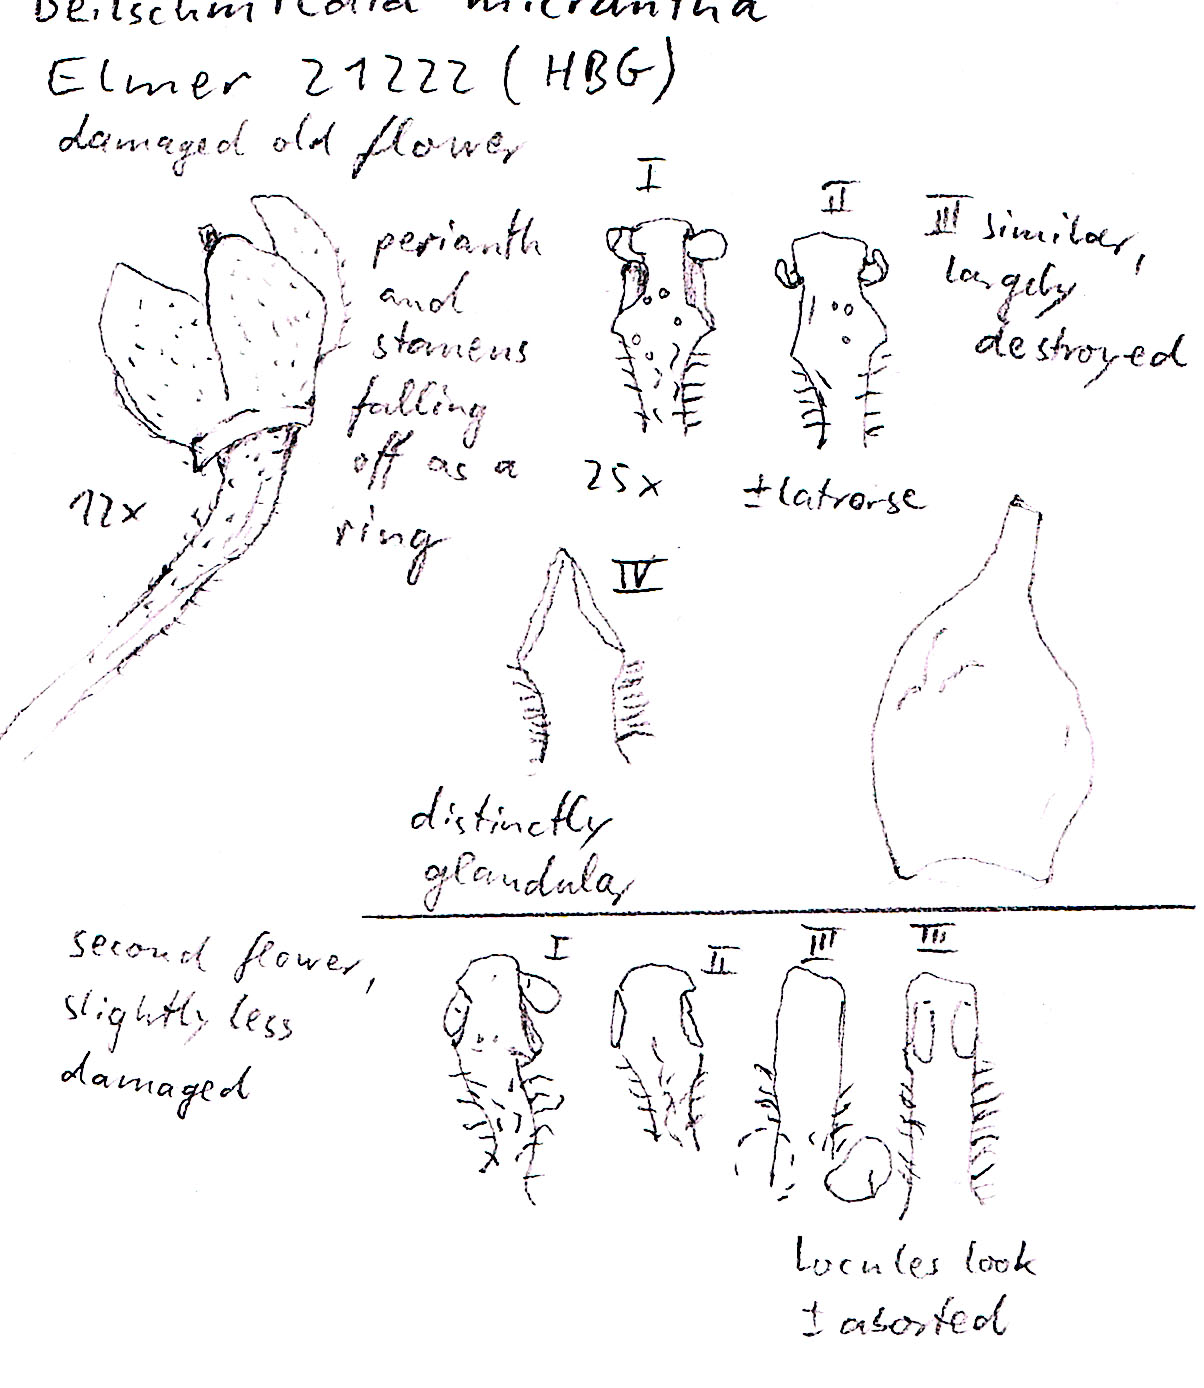 Beilschmiedia micrantha
Elmer 21222 (HBG)
damaged old flower
perianth
and
stamens
falling
off as a
ring
12x
I
II
III similar,
largely
destroyed
25x
± latrorse
IV
distinctly
glandular
second flower,
slightly less
damaged
I
II
III
III
Locules look
± aborted